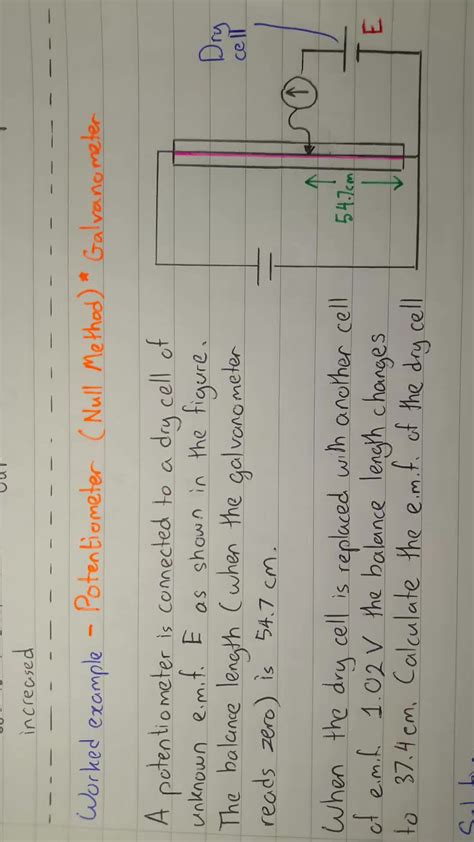 increased
Worked example - Potentiometer (Null Method) * Galvanometer
A potentiometer is connected to a dry cell of
unknown e.m.f. E as shown in the figure.
The balance length (when the galvanometer
reads zero) is 54.7 cm.
Dry
cell
E
54.7cm
When the dry cell is replaced with another cell
of e.m.f. 1.02 V the balance length changes
to 37.4 cm. Calculate the e.m.f. of the dry cell